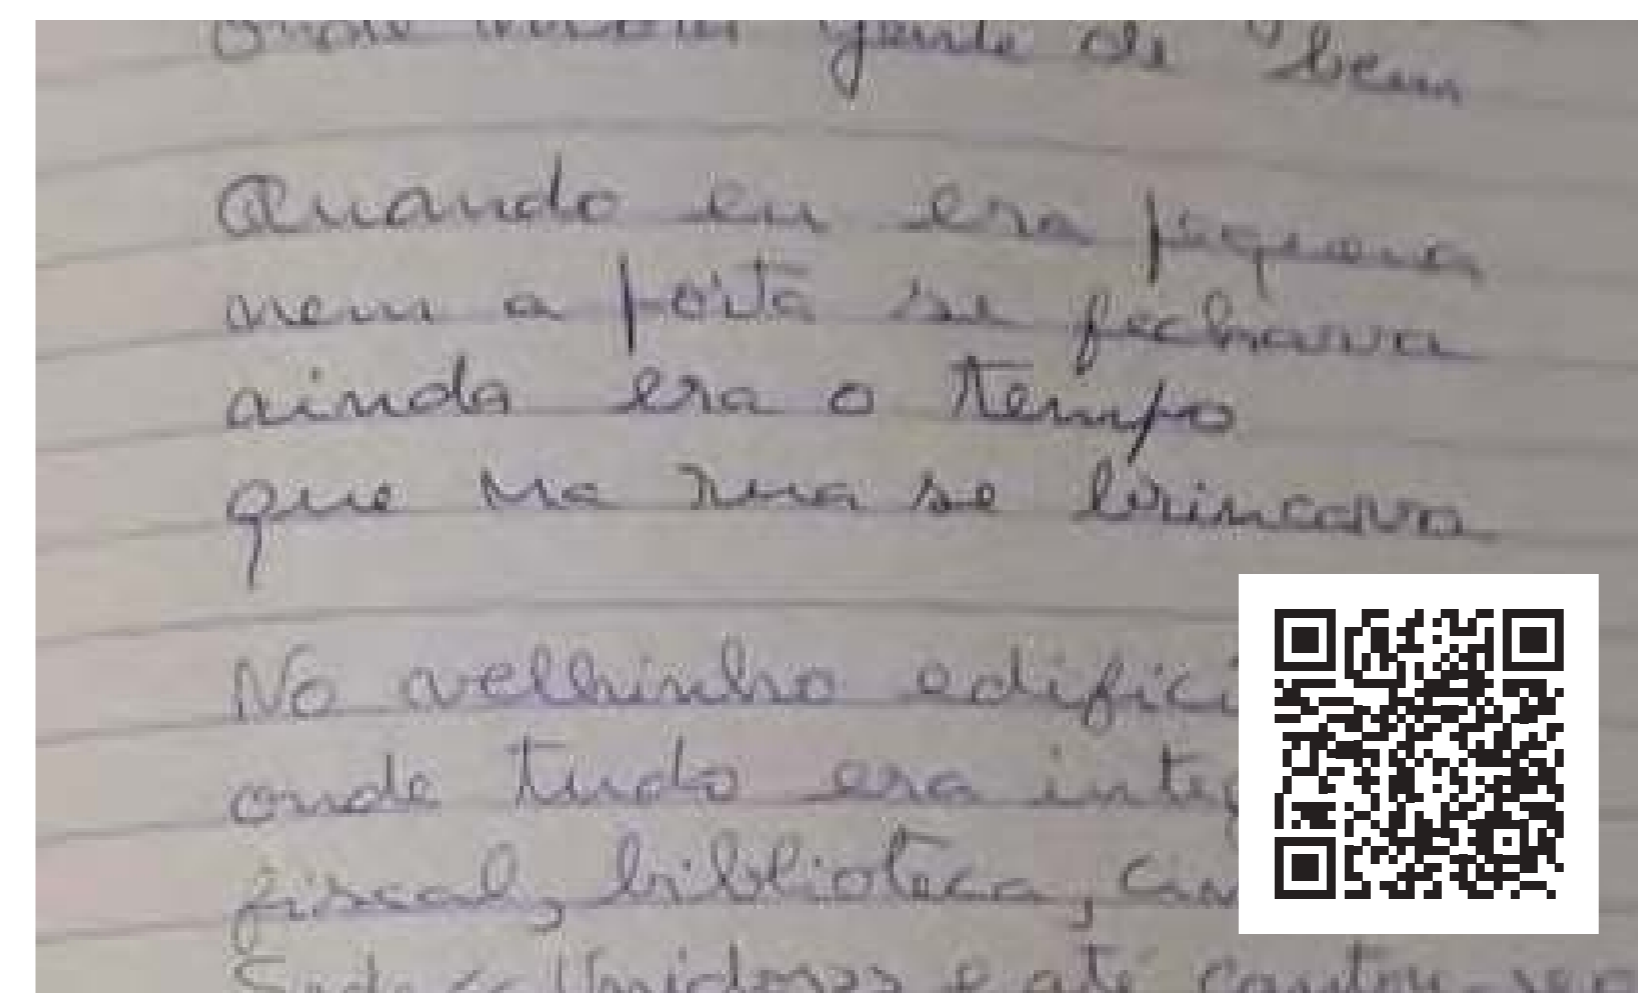 gente de bem
Quando eu era pequena
nem a porta se fechava
ainda era o tempo
que na rua se brincava
No velhinho edifíci
onde tudo era integ
fiscal, biblioteca, cin
e até cantou-se